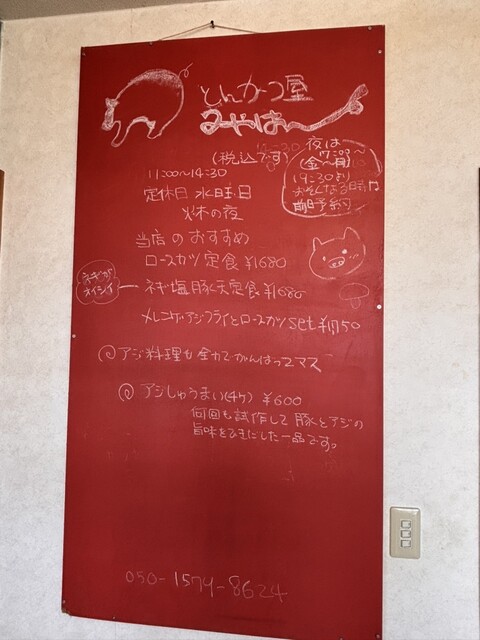 とんかつ屋
みやはー
(税込です)
夜は
17:00〜
(金〜月)
19:30より
おそくなる時は
前日予約
11:00〜14:30
定休日 水曜日
火木の夜
当店のおすすめ
ロースカツ定食 ¥1680
ネギが
オイシイ
ネギ塩豚天定食 ¥1680
メレンゲアジフライとロースカツset ¥1750
◎アジ料理も全力でがんばってマス
◎アジしゅうまい(4ケ) ¥600
何回も試作して豚とアジの
旨味を
した一品です。
050-1579-8624